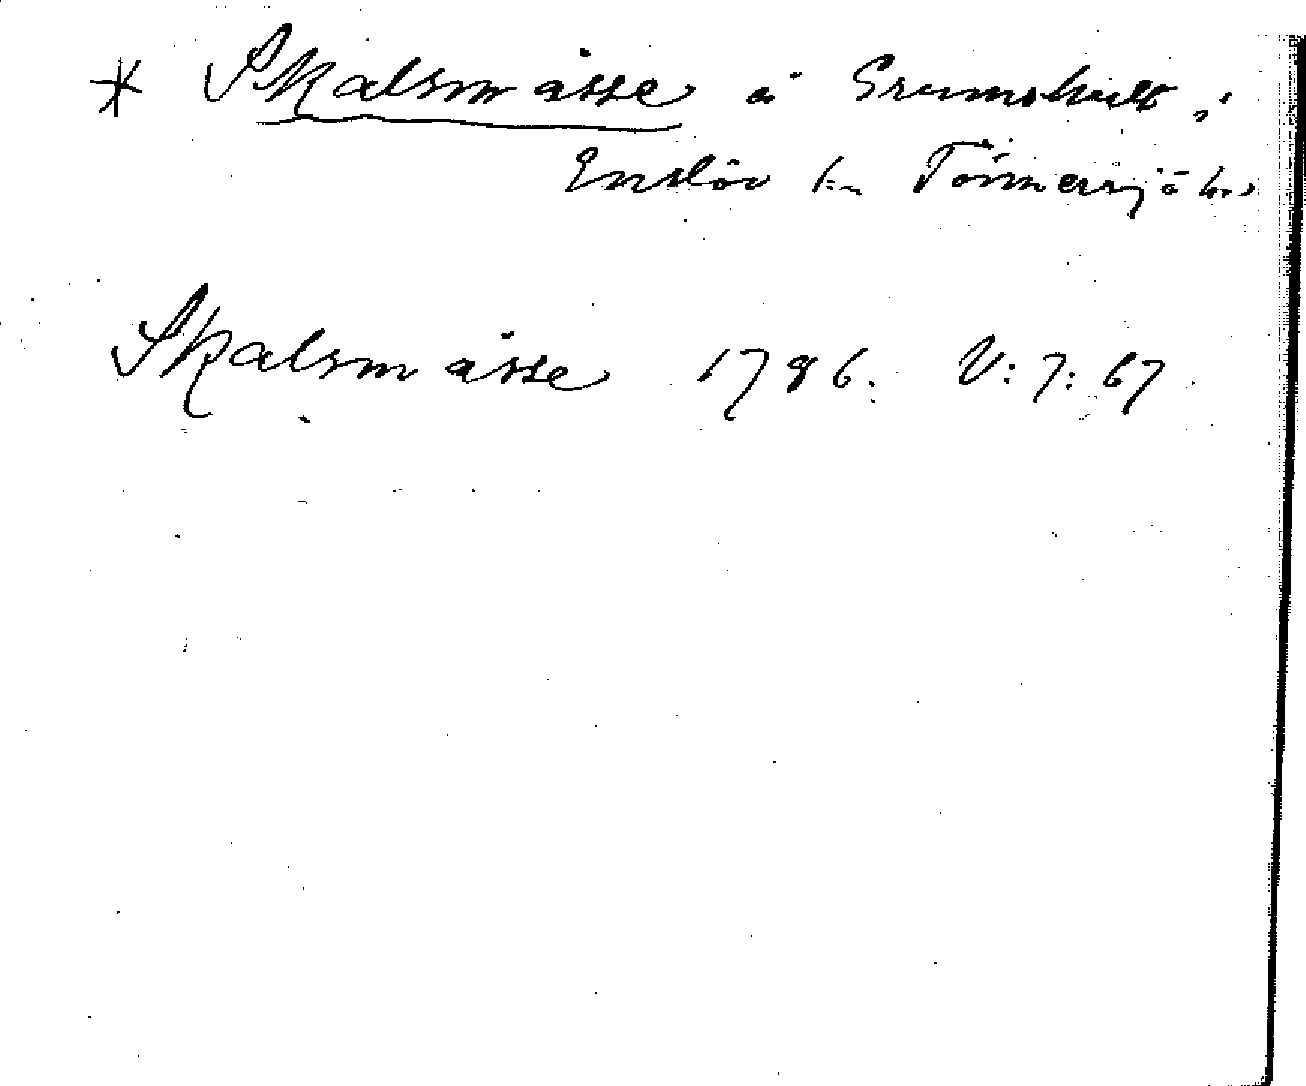 * Skalsmåsse å Grumshult i
Enslöv sn Tönnersjö hd
Skalsmåsse 1786. V:7:67